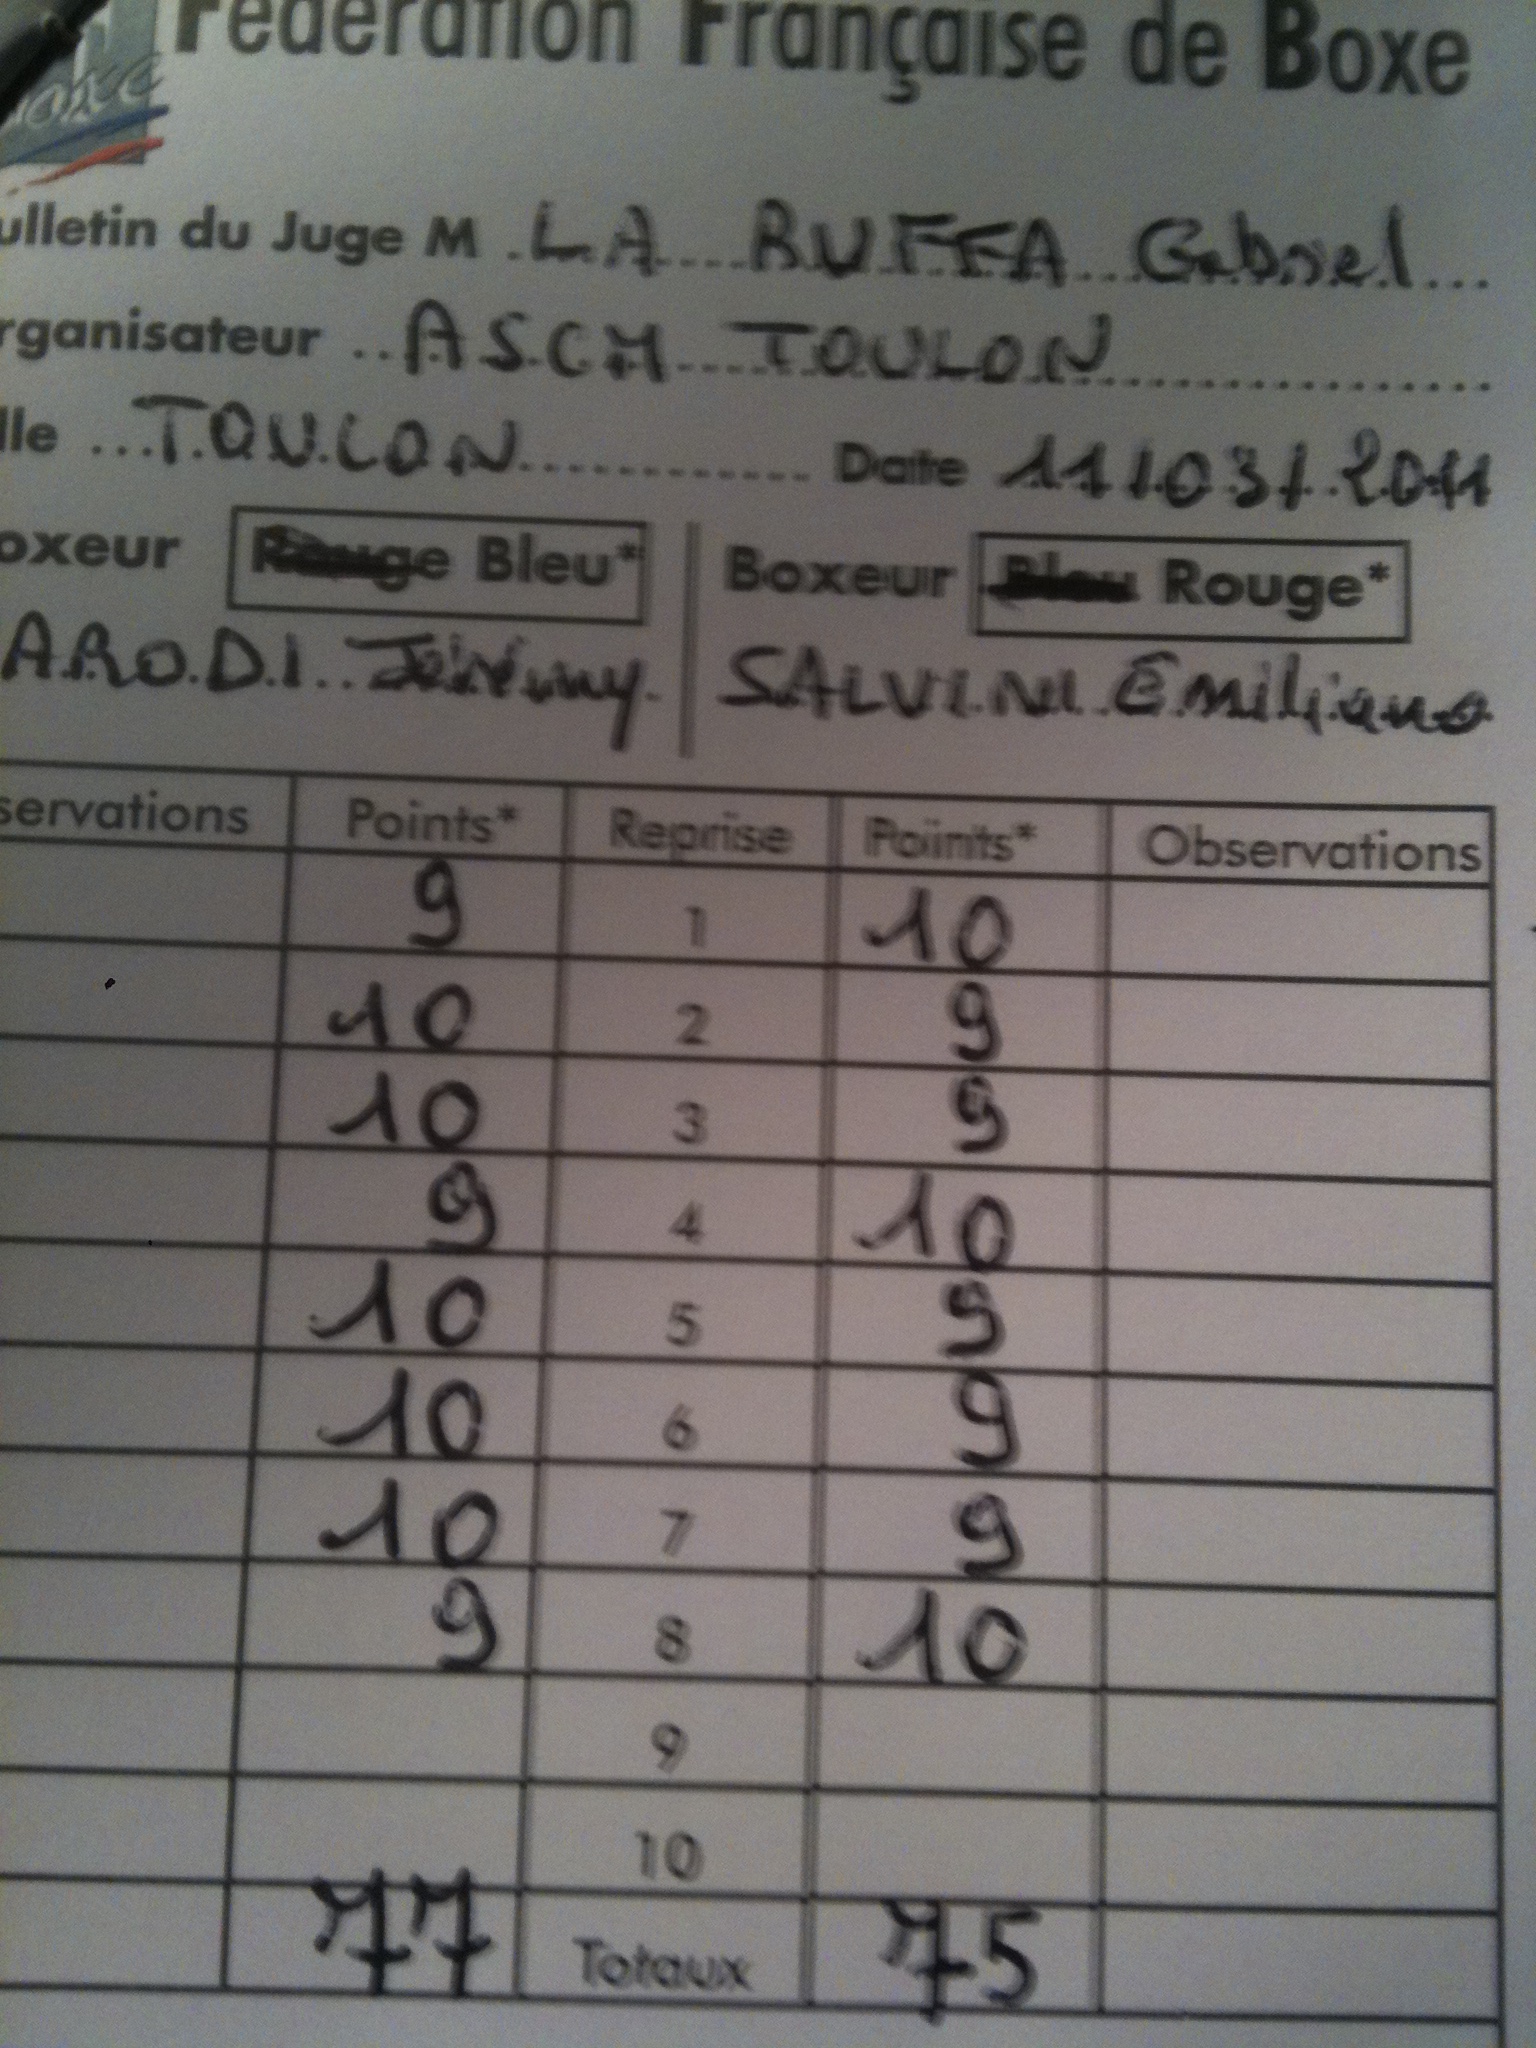 Fédération Française de Boxe
oxe
ulletin du Juge M LA RUFFA Gabriel
rganisateur ASCM TOULON
lle TOULON Date 11/03/2011
oxeur Rouge Bleu* Boxeur Bleu Rouge*
ARODI Jérémy SALVINI Emiliano
servations Points* Reprise Points* Observations
9 1 10
10 2 9
10 3 9
9 4 10
10 5 9
10 6 9
10 7 9
9 8 10
9
10
77 Totaux 75